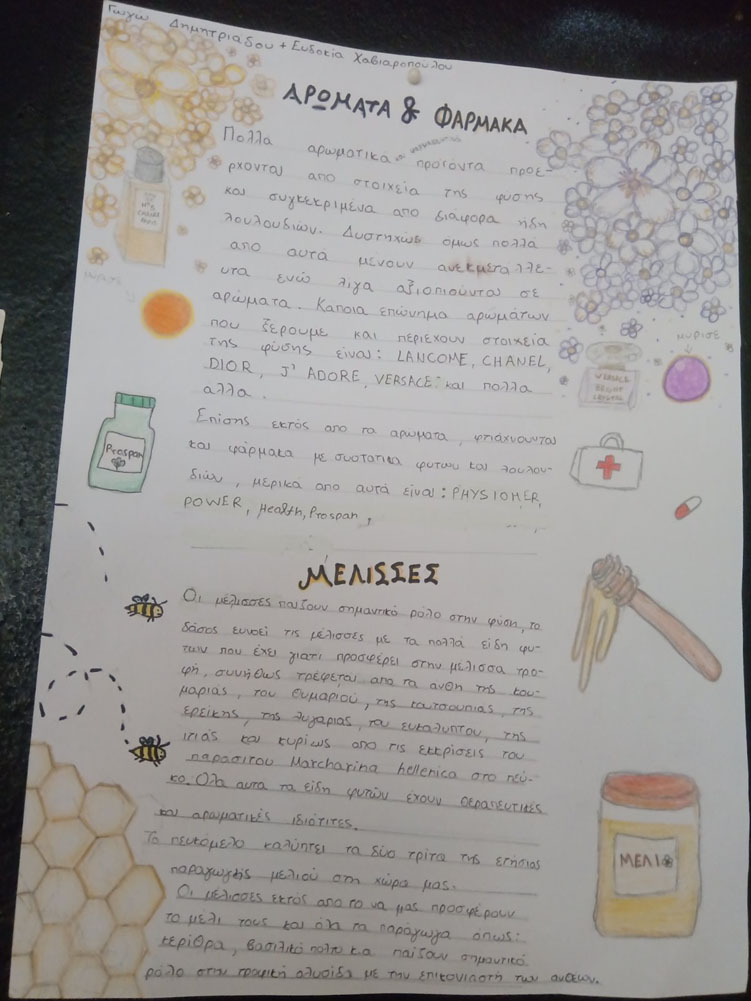 Γωγω Δημητριαδου + Ευδοκία Χαβιαροπούλου
ΑΡΩΜΑΤΑ & ΦΑΡΜΑΚΑ
Πολλα αρωματικα προϊοντα προε-
ρχονται απο στοιχεία της φυσης
και συγκεκριμένα απο διαφορα ήδη
λουλουδιών. Δυστηχώς όμως πολλά
απο αυτά μένουν ανεκμεταλλε-
υτα ενώ λιγα αξιοποιούνται σε
αρώματα. Καποια επώνυμα αρωμάτων
που ξερουμε και περιεχουν στοιχεία
της φύσης είναι: LANCOME, CHANEL,
DIOR, J' ADORE, VERSACE και πολλα
αλλα.
ΜΥΡΙΣΕ
ΜΥΡΙΣΕ
Nº5
CHANEL
VERSACE
BRIGHT
CRYSTAL
Prospan
Επίσης εκτός απο τα αρωματα, φτιάχνονται
και φάρμακα με συστατικα φυτων και λουλου-
διών, μερικά απο αυτά είναι: PHYSIOMER,
POWER, Health, Prospan,
ΜΕΛΙΣΣΕΣ
Οι μέλισσες παίζουν σημαντικό ρόλο στην φύση, το
δάσος ευνοεί τις μέλισσες με τα πολλά είδη φυ-
των που έχει γιατι προσφέρει στην μέλισσα τρο-
φή, συνήθως τρέφεται απο τα ανθη της κου-
μαριάς, του θυμαριού, της κουτσουπιάς, της
ερεικης, της λυγαριας, του ευκαλυπτου, της
ιτιάς και κυρίως απο τις εκκρίσεις του
παρασιτου Marcharina hellenica στο πεύ-
κο. Ολα αυτα τα είδη φυτών έχουν θεραπευτικές
και αρωματικές ιδιότιτες.
Το πευκόμελο καλύπτει τα δύο τρίτα της ετήσιας
παραγωγής μελιού στη χώρα μας.
Οι μέλισσες εκτός απο το να μας προσφέρουν
το μελι τους και όλα τα παράγωγα οπως:
κερίθρα, βασιλικό πολτο κ.α παίζουν σημαντικό
ρόλο στην τροφική αλυσίδα με την επικονιαστή των ανθεων.
ΜΕΛΙ